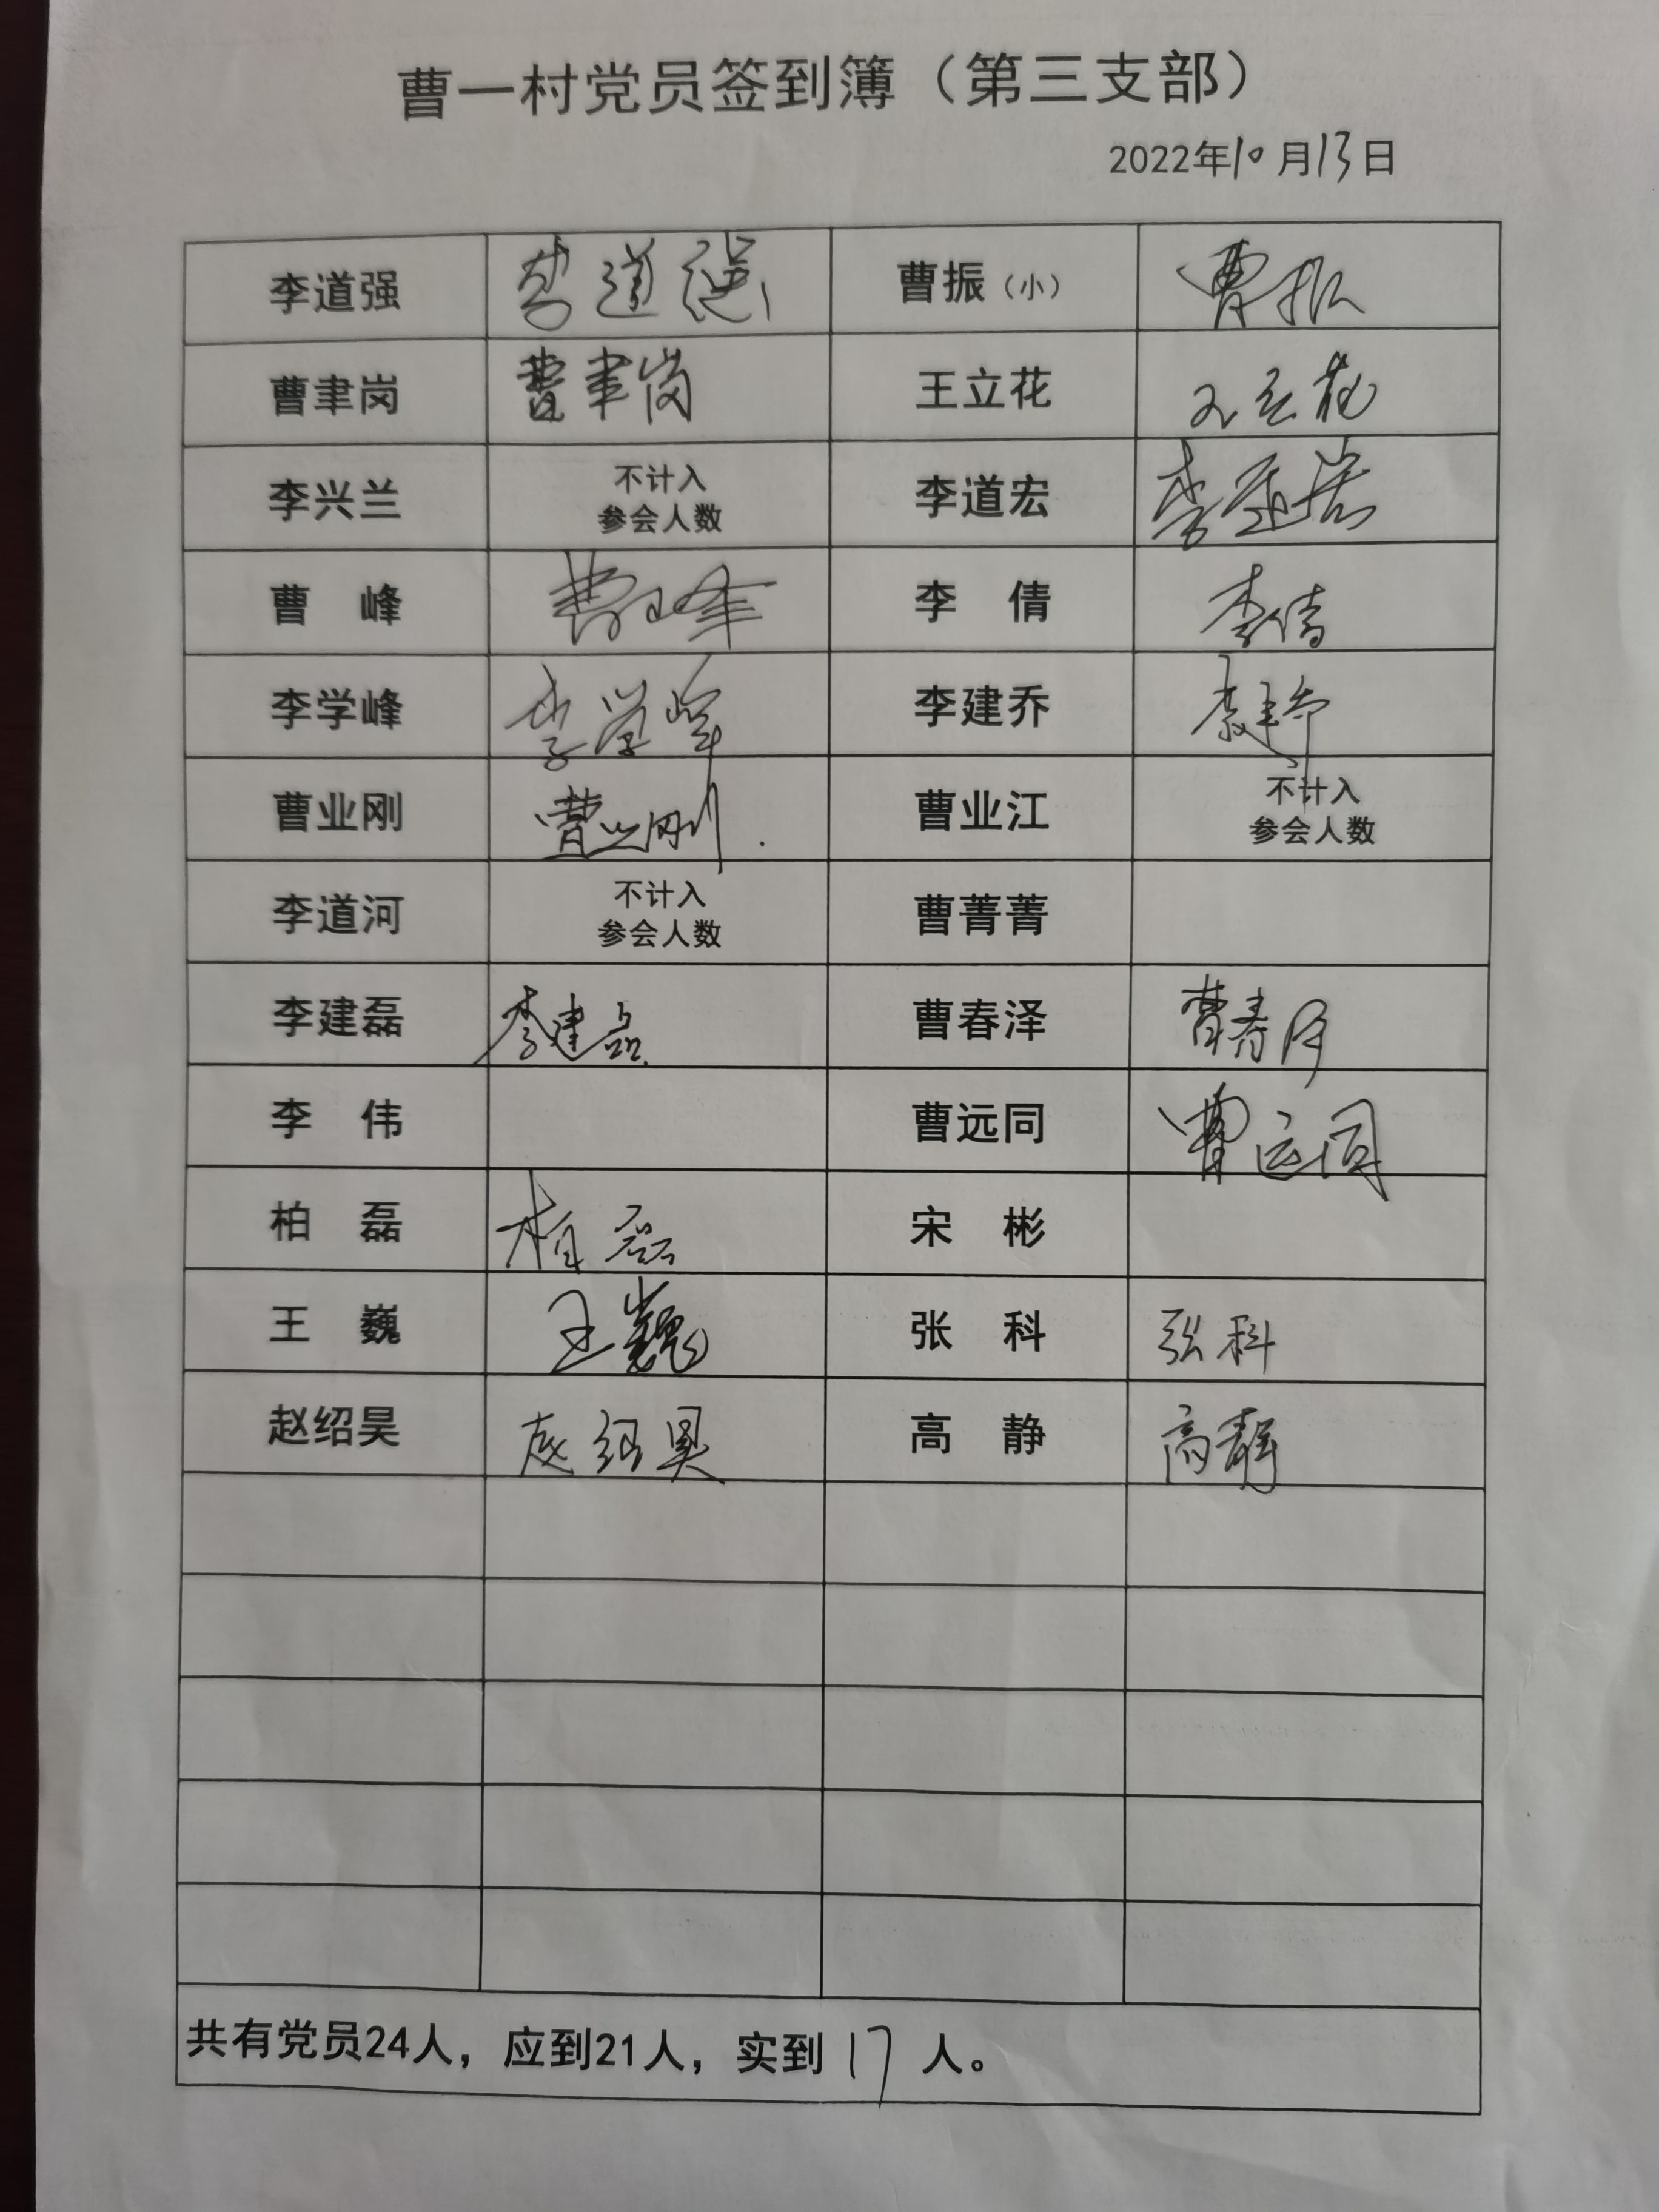 曹一村党员签到簿（第三支部）
2022年10月13日
李道强 李道强 曹振（小） 曹振
曹聿岗 曹聿岗 王立花 王立花
李兴兰 不计入 李道宏 李道宏
参会人数
曹 峰 曹峰 李 倩 李倩
李学峰 李学峰 李建乔 李建乔
曹业刚 曹业刚 曹业江 不计入
参会人数
李道河 不计入 曹菁菁
参会人数
李建磊 李建磊 曹春泽 曹春泽
李 伟 曹远同 曹远同
柏 磊 柏磊 宋 彬
王 巍 王巍 张 科 张科
赵绍昊 赵绍昊 高 静 高静
共有党员24人，应到21人，实到 17 人。